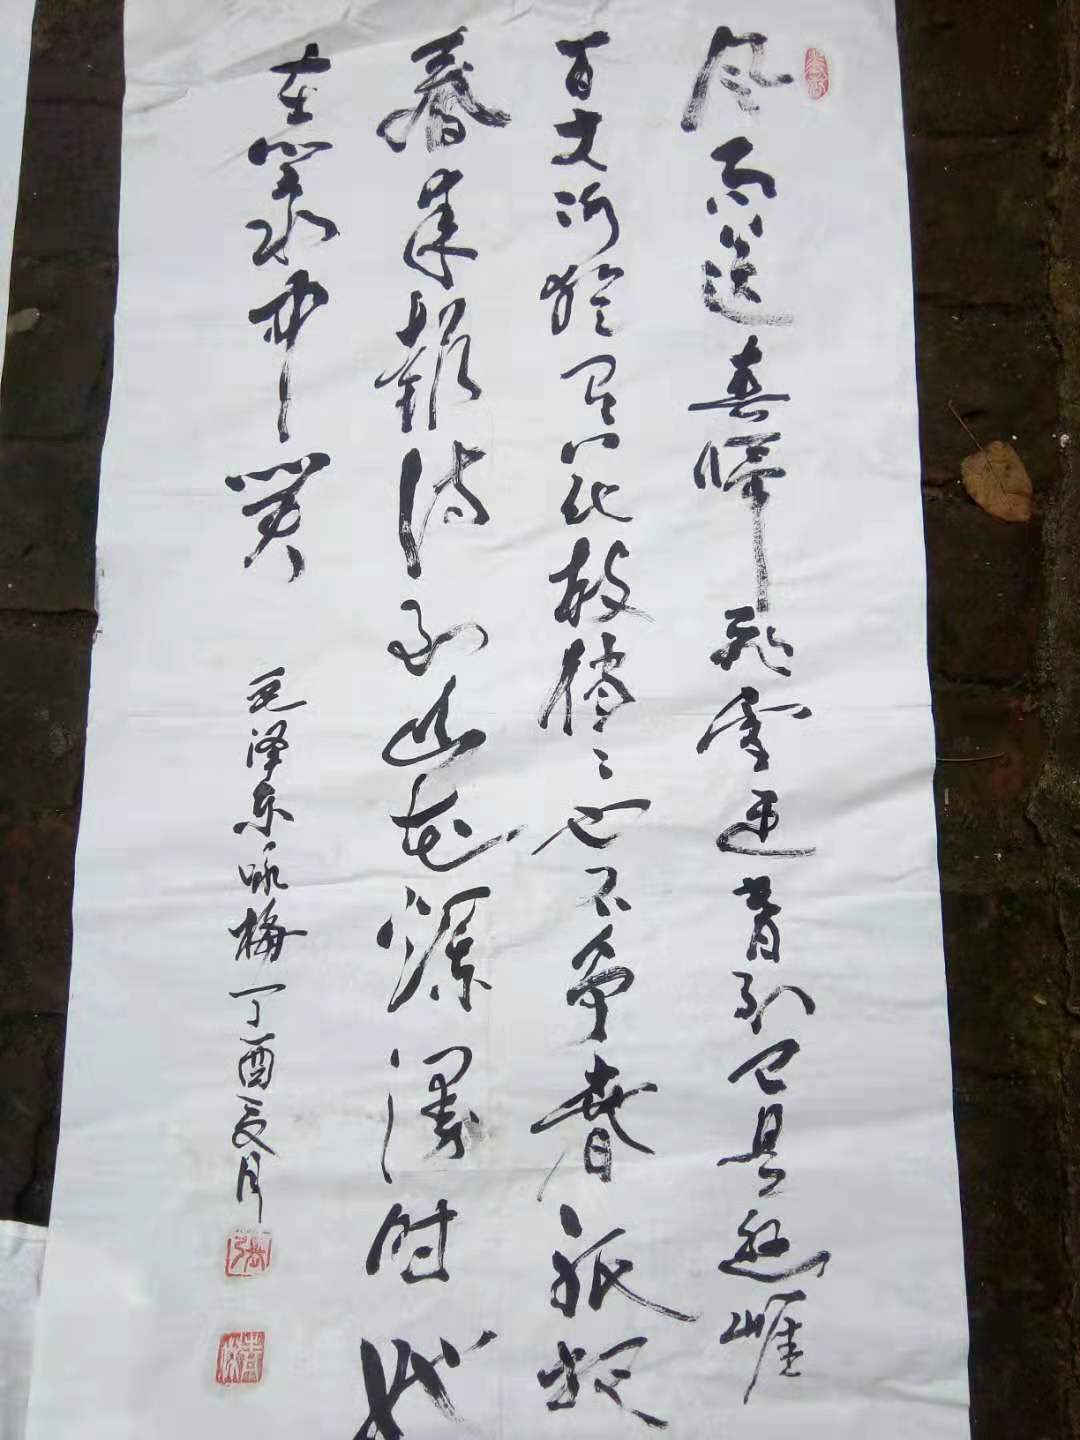 风雨送春归飞雪迎春到已是悬崖
百丈冰犹有花枝俏〻也不争春祇把
春来报待到山花烂漫时她
在丛中笑
毛泽东咏梅 丁酉夏月
张